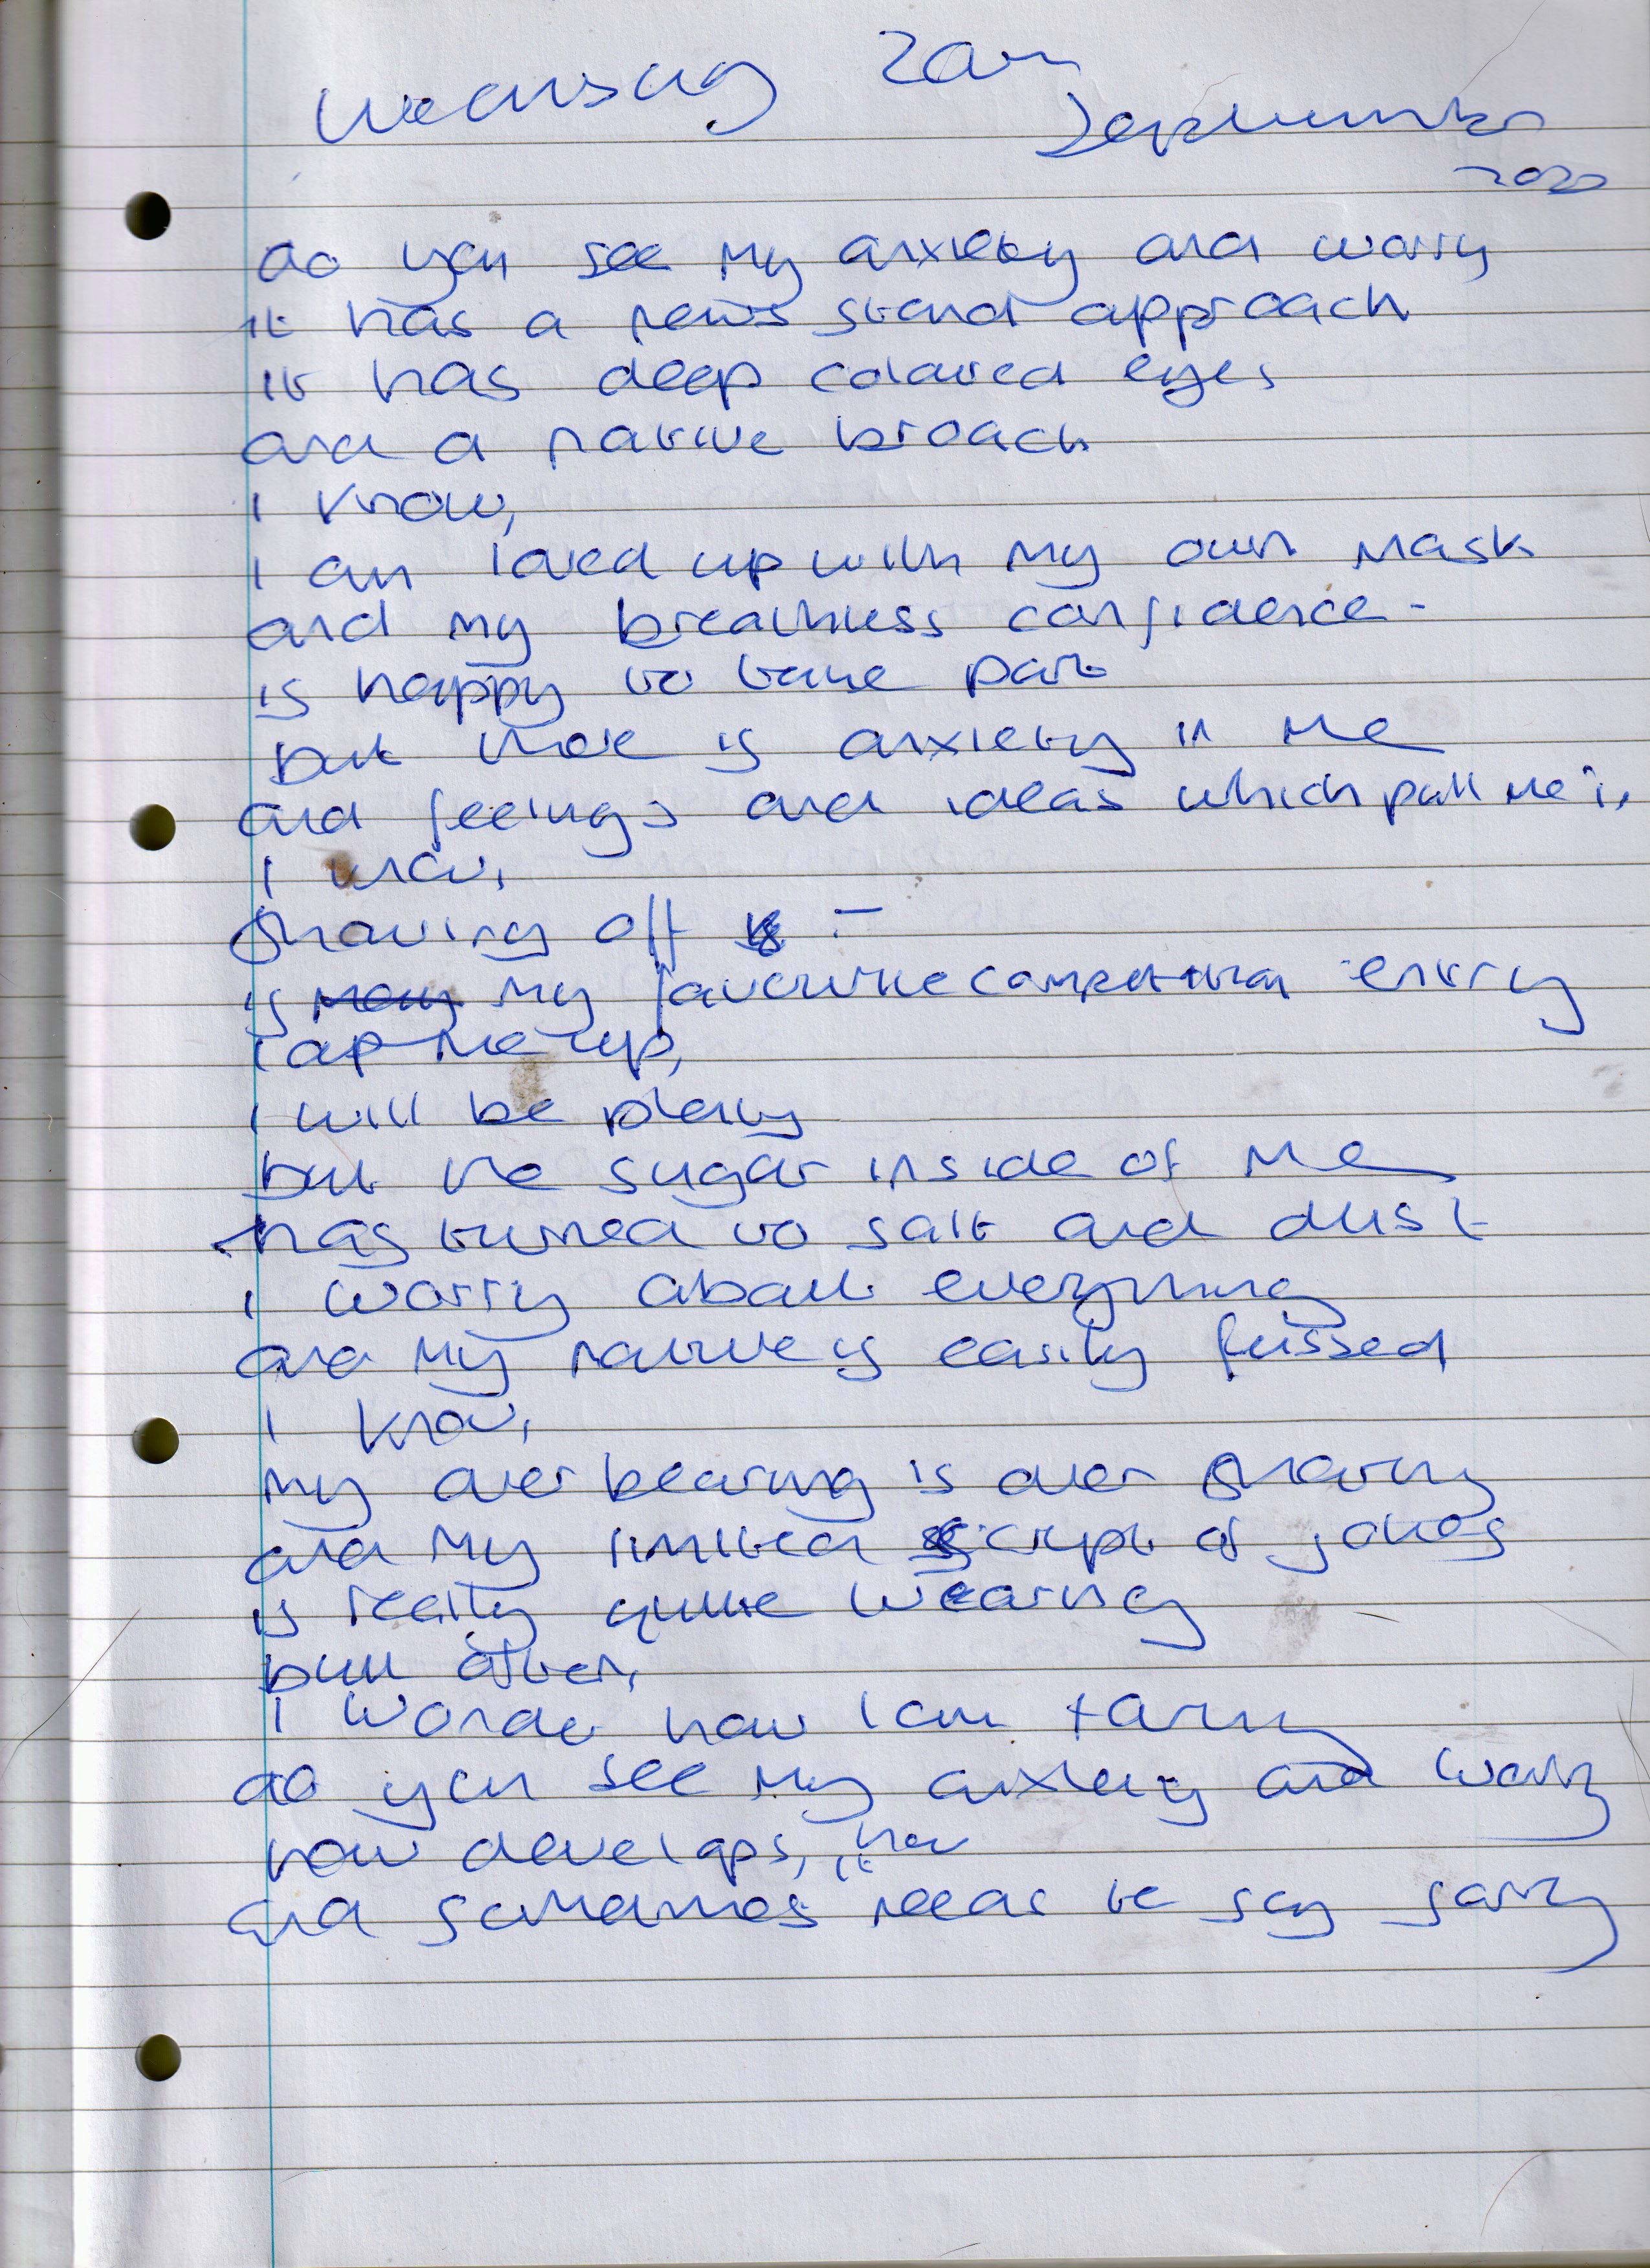 September
2020
do you see my anxiety and worry
it has a news stand approach
it has deep coloured eyes
and a native broach
I know,
I am loved up with my own mask
and my breathless confidence -
is happy to take part
but there is anxiety in me
and feelings and ideas which pull me in
I know,
showing off -
is my favourite competition entry
I will be plenty
but the sugar inside of me
has turned to salt and dust
I worry about everything
and my nature is easily fussed
I know,
my over bearing is over sharing
and my limited script of jokes
is really quite wearing
but often,
I wonder how I am
do you see my anxiety and worry
how develops, it how
and sometimes needs to say sorry